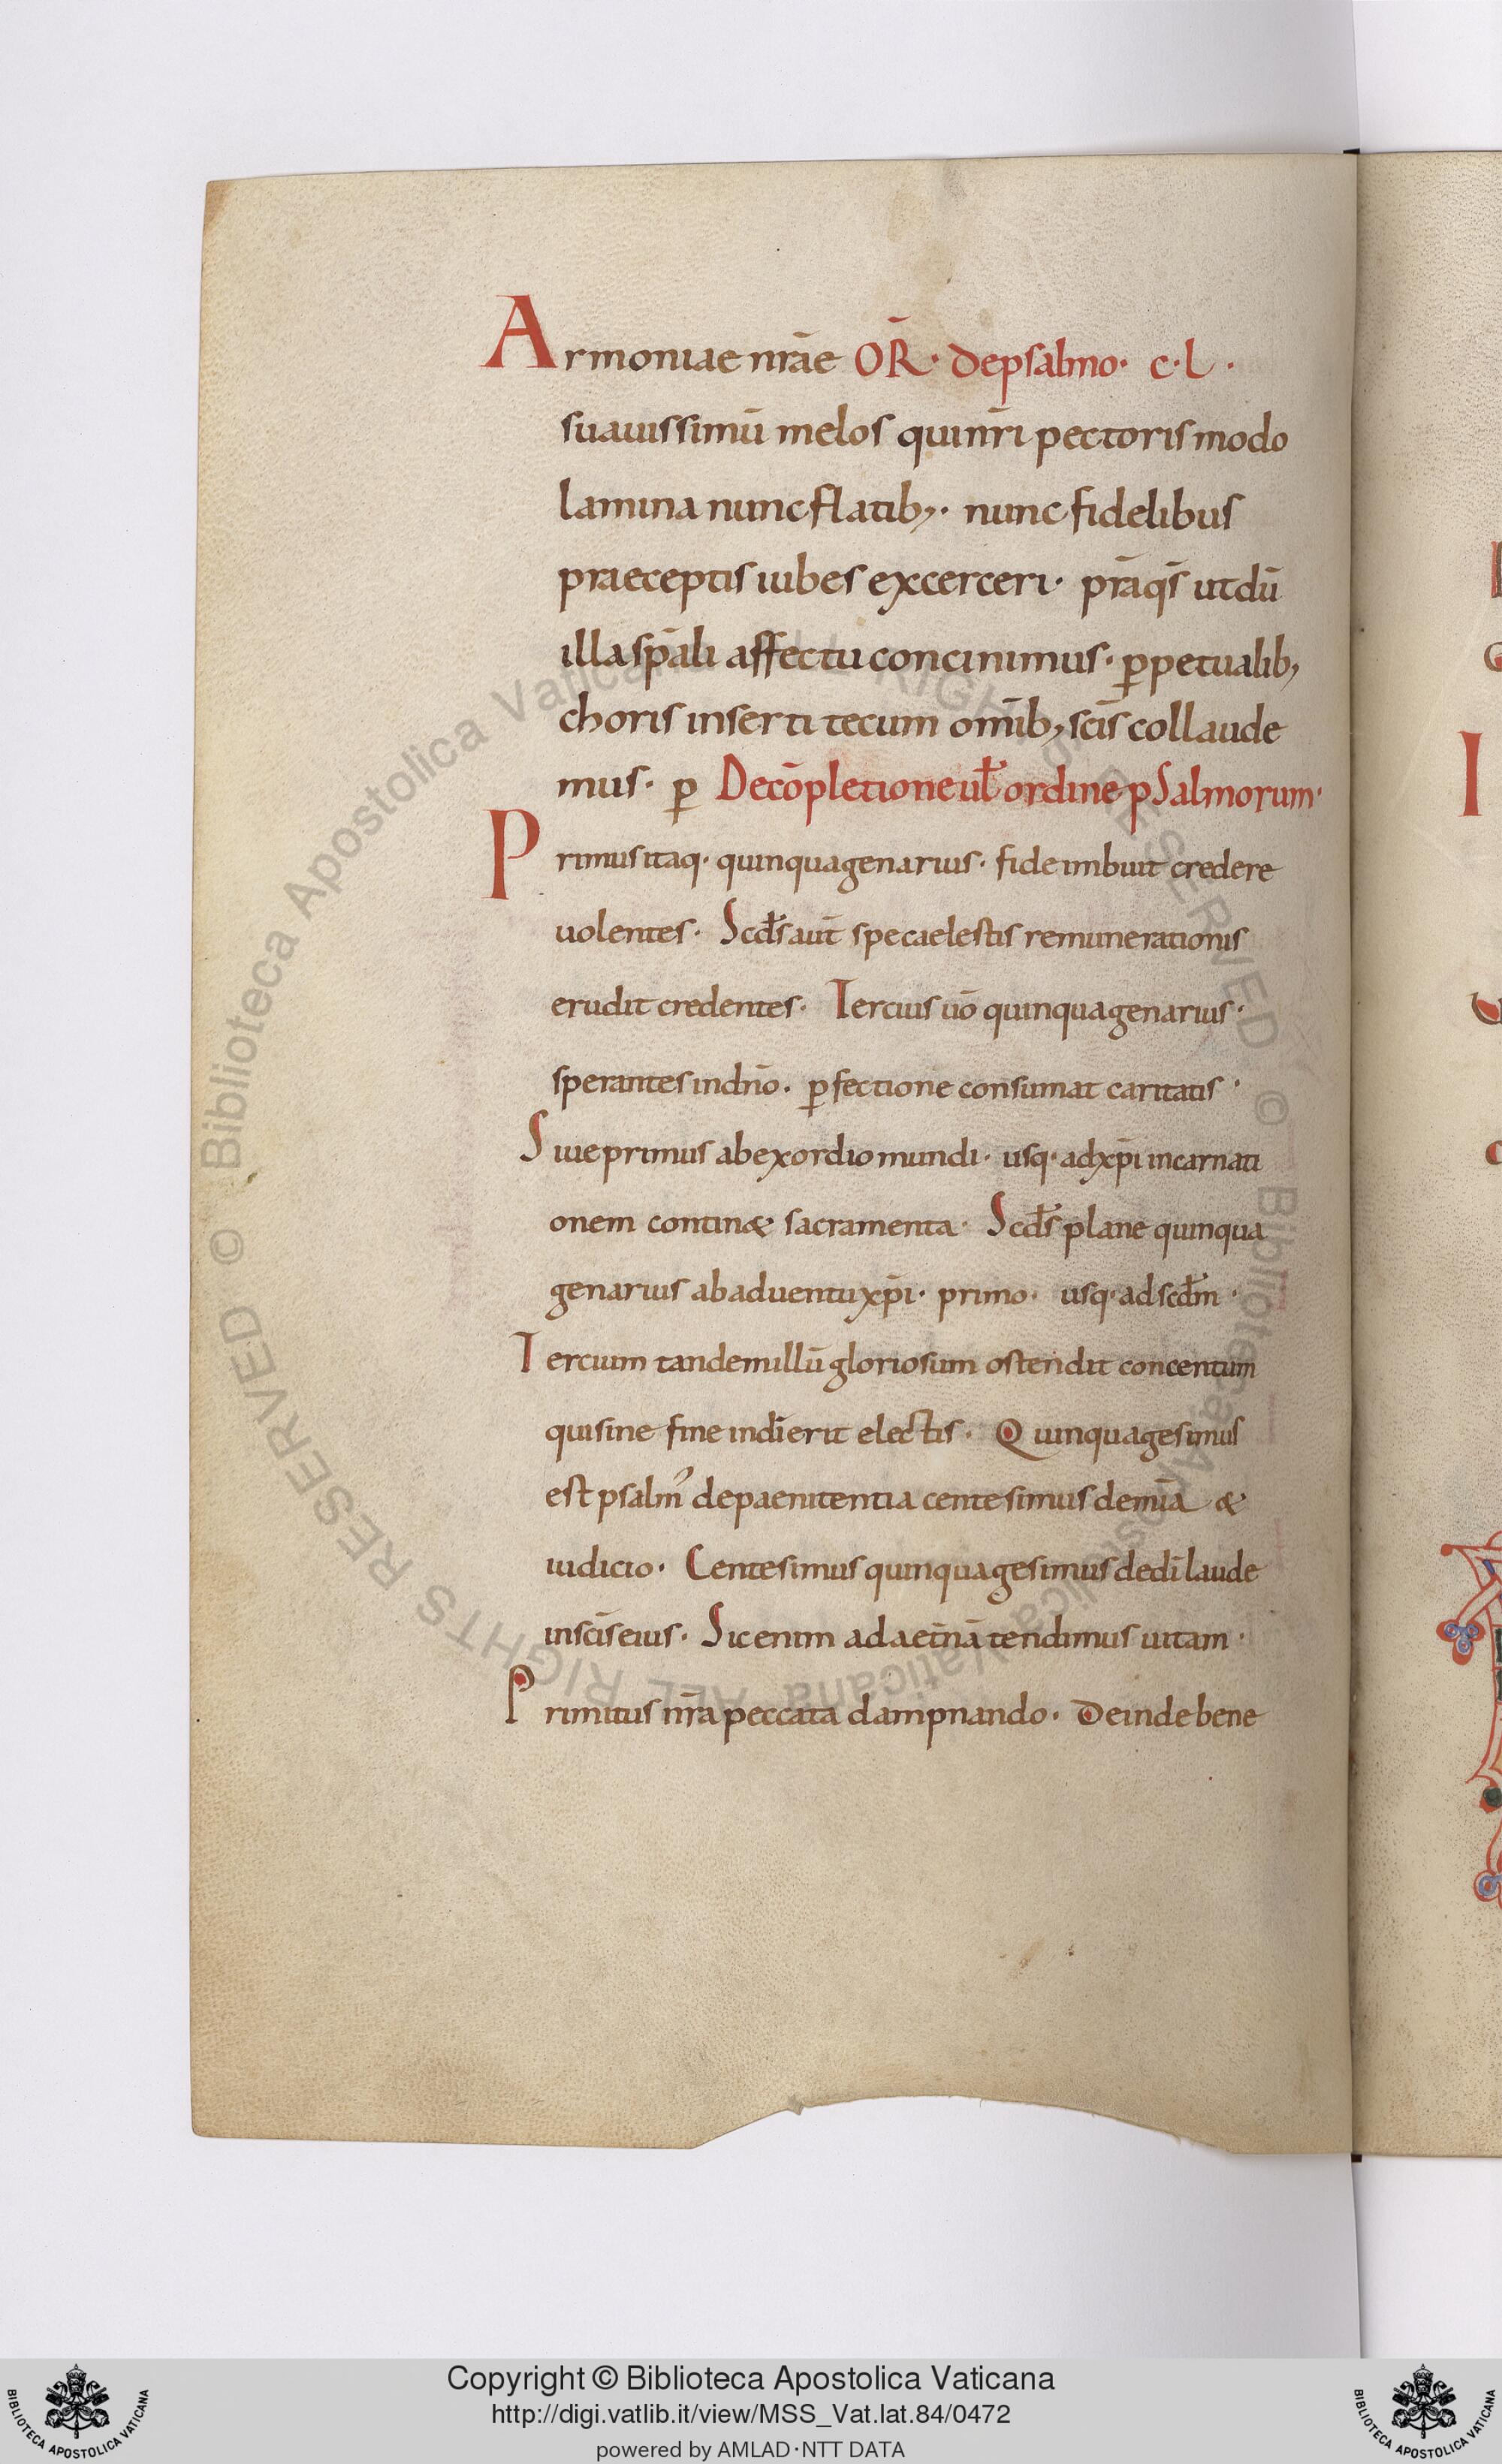 Armoniae nr̄ae OR̄· de psalmo· c·l·
suauissimū melos qui nr̄i pectoris modo
lamina nunc flatib;· nunc fidelibus
praeceptis iubes excerceri· pr̄a qs̄ ut dū
illa sp̄ali affectu concinimus· ꝑpetualib;
choris inserti tecum om̄ib; sc̄is collaude
mus· ꝑ De cōpletione ul̄ ordine pSalmorum·
Primus itaq· quinquagenarius· fide imbuit credere
uolentes· Scd̄s aut̄ spe caelestis remunerationis
erudit credentes· Tercius uō quinquagenarius·
sperantes in dn̄o· ꝑfectione consumat caritatis·
Siue primus ab exordio mundi· usq· ad xp̄i incarnati
onem contin& sacramenta· Scd̄s plane quinqua
genarius ab aduentu xp̄i· primo· usq· ad scd̄m·
Tercium tandem illū gloriosum ostendit concentum
qui sine fine in dī erit electis· Quinquagesimus
est psalm̓ de paenitentia centesimus de mīa &
iudicio· Centesimus quinquagesimus de dī laude
in sc̄is eius· Sic enim ad aet̄nā tendimus uitam·
Primitus nr̄a peccata dampnando· Deinde bene
© Biblioteca Apostolica Vaticana ALL RIGHTS RESERVED © Biblioteca Apostolica Vaticana ALL RIGHTS RESERVED
Copyright © Biblioteca Apostolica Vaticana
http://digi.vatlib.it/view/MSS_Vat.lat.84/0472
powered by AMLAD·NTT DATA
BIBLIOTECA APOSTOLICA VATICANA
BIBLIOTECA APOSTOLICA VATICANA